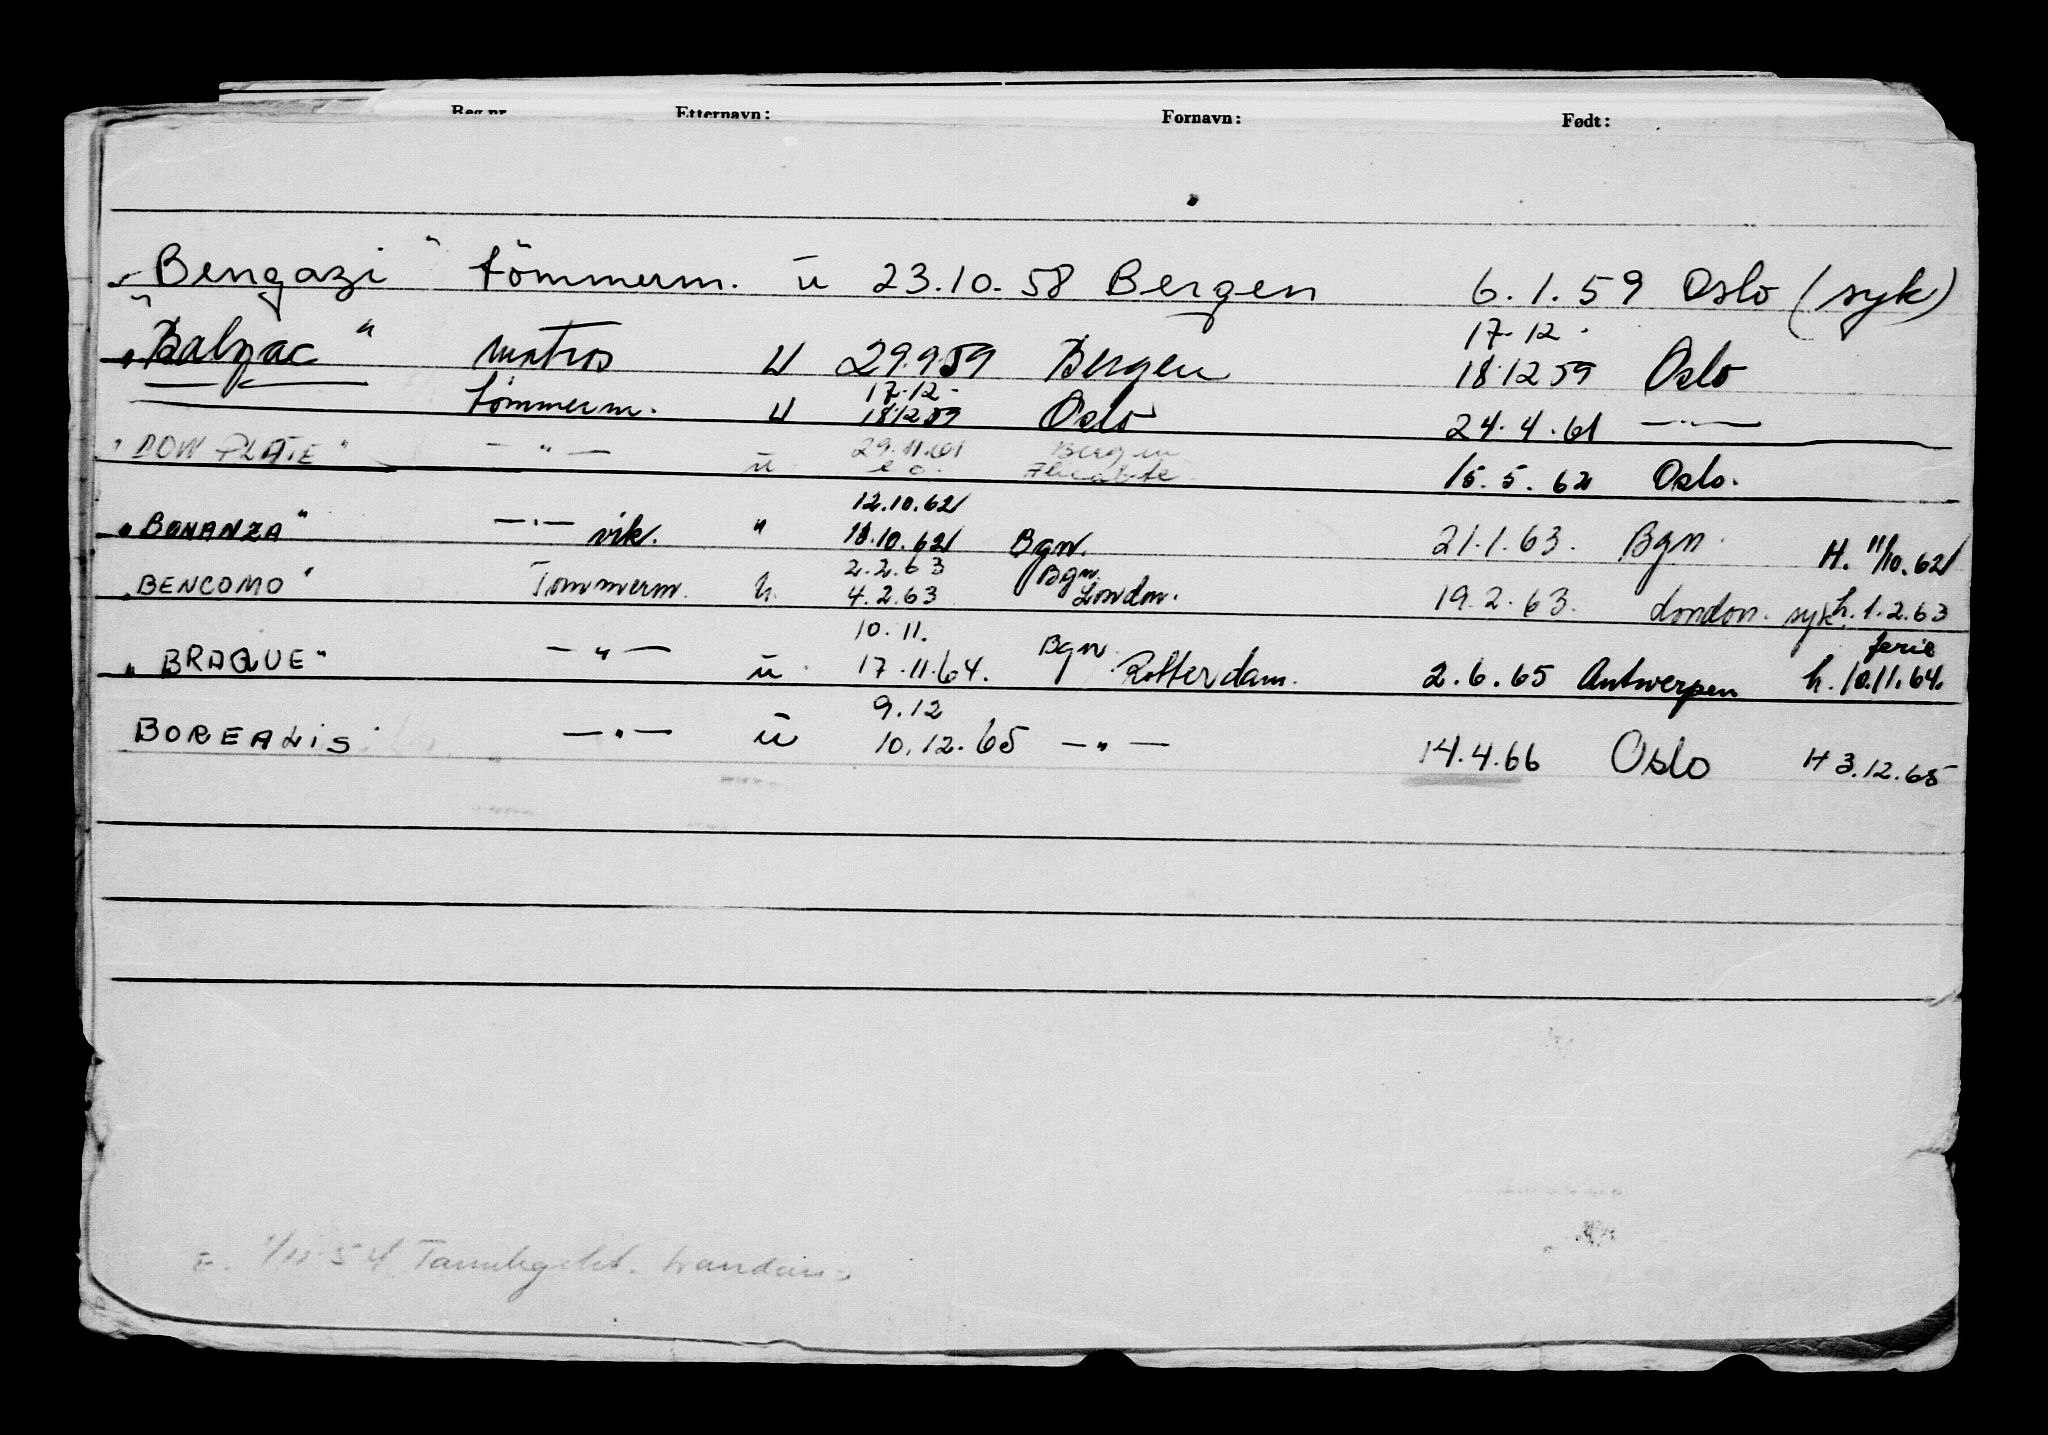 Reg.nr. Etternavn: Fornavn: Født:
"Bengazi" tömmerm. u 23.10.58 Bergen 6.1.59 Oslo (syk)
17.12.
"Balzac" matros u 29.9.59 Bergen 18.12.59 Oslo
17.12.
tömmerm. u 18.12.59 Oslo 24.4.61 —"—
29.11.61 Bergen
—"— u 15.5.62 Oslo.
12.10.62
"BONANZA" —"— vik. " 18.10.62 Bgn. 21.1.63. Bgn. H. 11/10.62
2.2.63 Bgn.
"BENCOMO" Tömmerm. u. 4.2.63 London. 19.2.63. London. syk h. 1.2.63
10.11. Bgn ferie
"BRAQUE" —"— u 17.11.64. Rotterdam. 2.6.65 Antwerpen h. 10.11.64.
9.12
BOREALIS —"— u 10.12.65 —"— 14.4.66 Oslo H 3.12.65
1/11-54